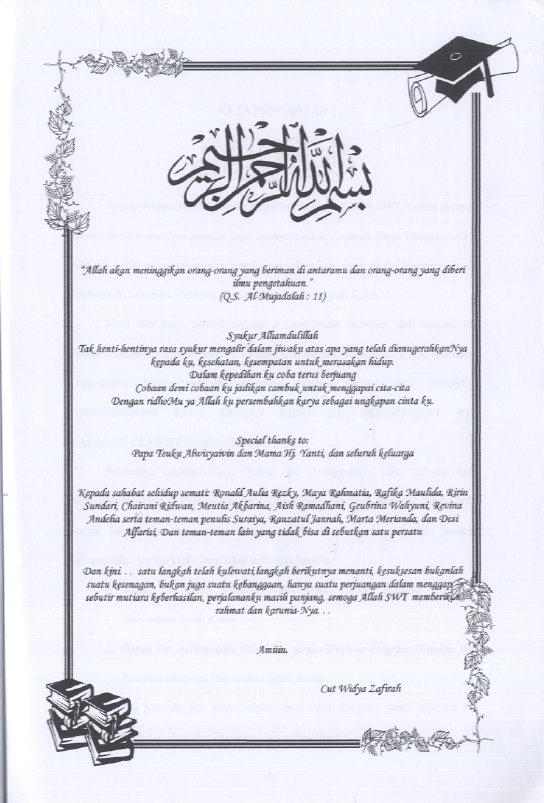 بسم الله الرحمن الرحيم
"Allah akan meninggikan orang-orang yang beriman di antaramu dan orang-orang yang diberi
ilmu pengetahuan."
(Q.S. Al-Mujadalah : 11)
Syukur Alhamdulillah
Tak henti-hentinya rasa syukur mengalir dalam jiwaku atas apa yang telah dianugerahkanNya
kepada ku, kesehatan, kesempatan untuk merasakan hidup.
Dalam kepedihan ku coba terus berjuang
Cobaan demi cobaan ku jadikan cambuk untuk menggapai cita-cita
Dengan ridhoMu ya Allah ku persembahkan karya sebagai ungkapan cinta ku.
Special thanks to:
Papa Teuku Ahwisyaivin dan Mama Hj. Yanti, dan seluruh keluarga
Kepada sahabat sehidup semati: Ronald Aulia Rezky, Maya Rahmatia, Rafika Maulida, Ririn
Sundari, Chairani Ridwan, Meutia Akbarina, Aish Ramadhani, Geubrina Wahyuni, Revina
Andelia serta teman-teman penulis Suraiya, Rauzatul Jannah, Marta Merianda, dan Desi
Alfarisi, Dan teman-teman lain yang tidak bisa di sebutkan satu persatu
Dan kini. . . satu langkah telah kulewati,langkah berikutnya menanti, kesuksesan bukanlah
suatu kesenagan, bukan juga suatu kebanggaan, hanya suatu perjuangan dalam menggapai
sebutir mutiara keberhasilan, perjalananku masih panjang, semoga Allah SWT memberikan
rahmat dan karunia-Nya. . .
Amiiin.
Cut Widya Zafirah